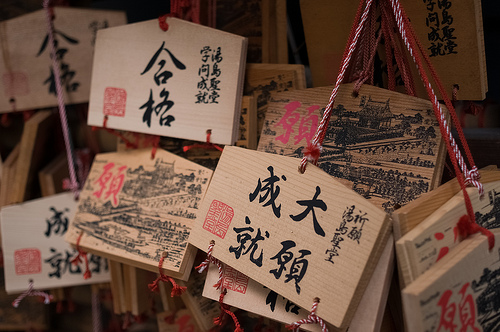 合格
湯島聖堂
学問成就
合格
学問成就
願
願
大願
成就
祈願
湯島聖堂
成
就
格
願